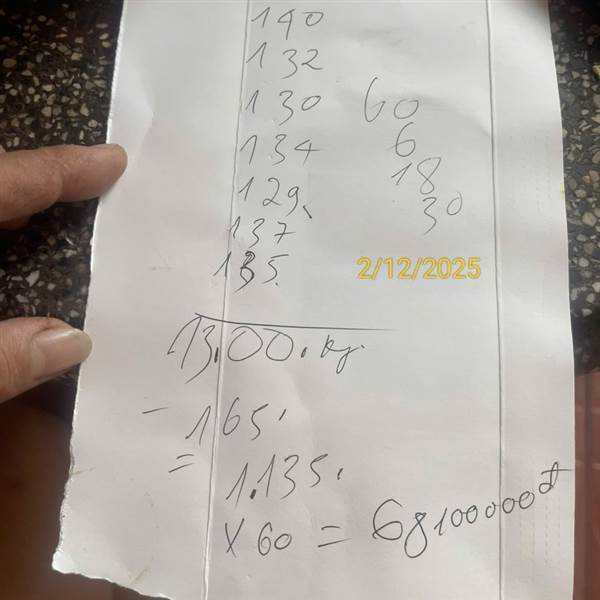 140
132
130
60
134
6
18
129
30
137
135.
2/12/2025
13.00. kg.
- 165.
= 1.135.
x 60 = 68100000đ